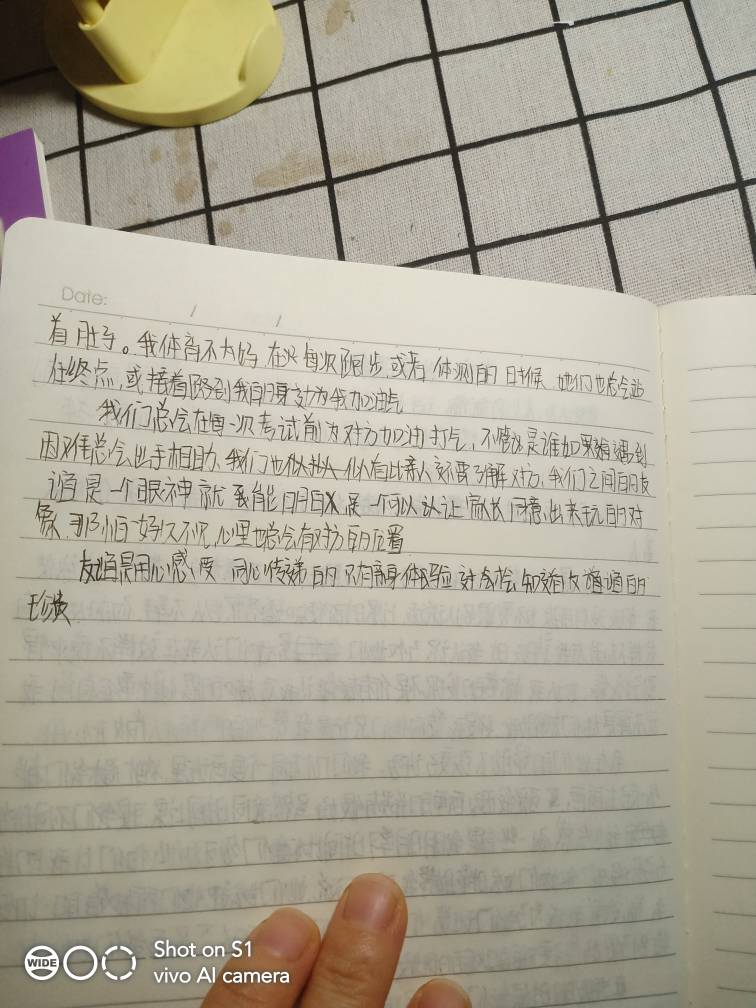 Date: / /
着肚子。我体育不大好,在以每次跑步或者体测的时候 她们也总会站
在终点,或接着跑到我的身边为我加油气
我们总会在每一次考试前为对方加油打气,不管这是谁如果遇到
困难总会出手相助,我们也似比亲人还要了解对方,我们之间的友
谊是一个眼神就能明白又是一个可以认让家长同意出来玩的对
象 那怕好久不见,心里也总会有对方的位置
友谊是用心感受 同心传递的 只有亲身体验对会 知道友谊的
珍贵
WIDE
Shot on S1
vivo AI camera